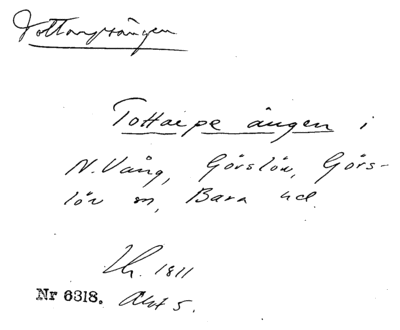 Tottarpsängen
Tottarpe ängen i
N. Vång, Görslöv, Görs-
löv sn, Bara hd.
Lh. 1811
Nr 6318. Akt 5.